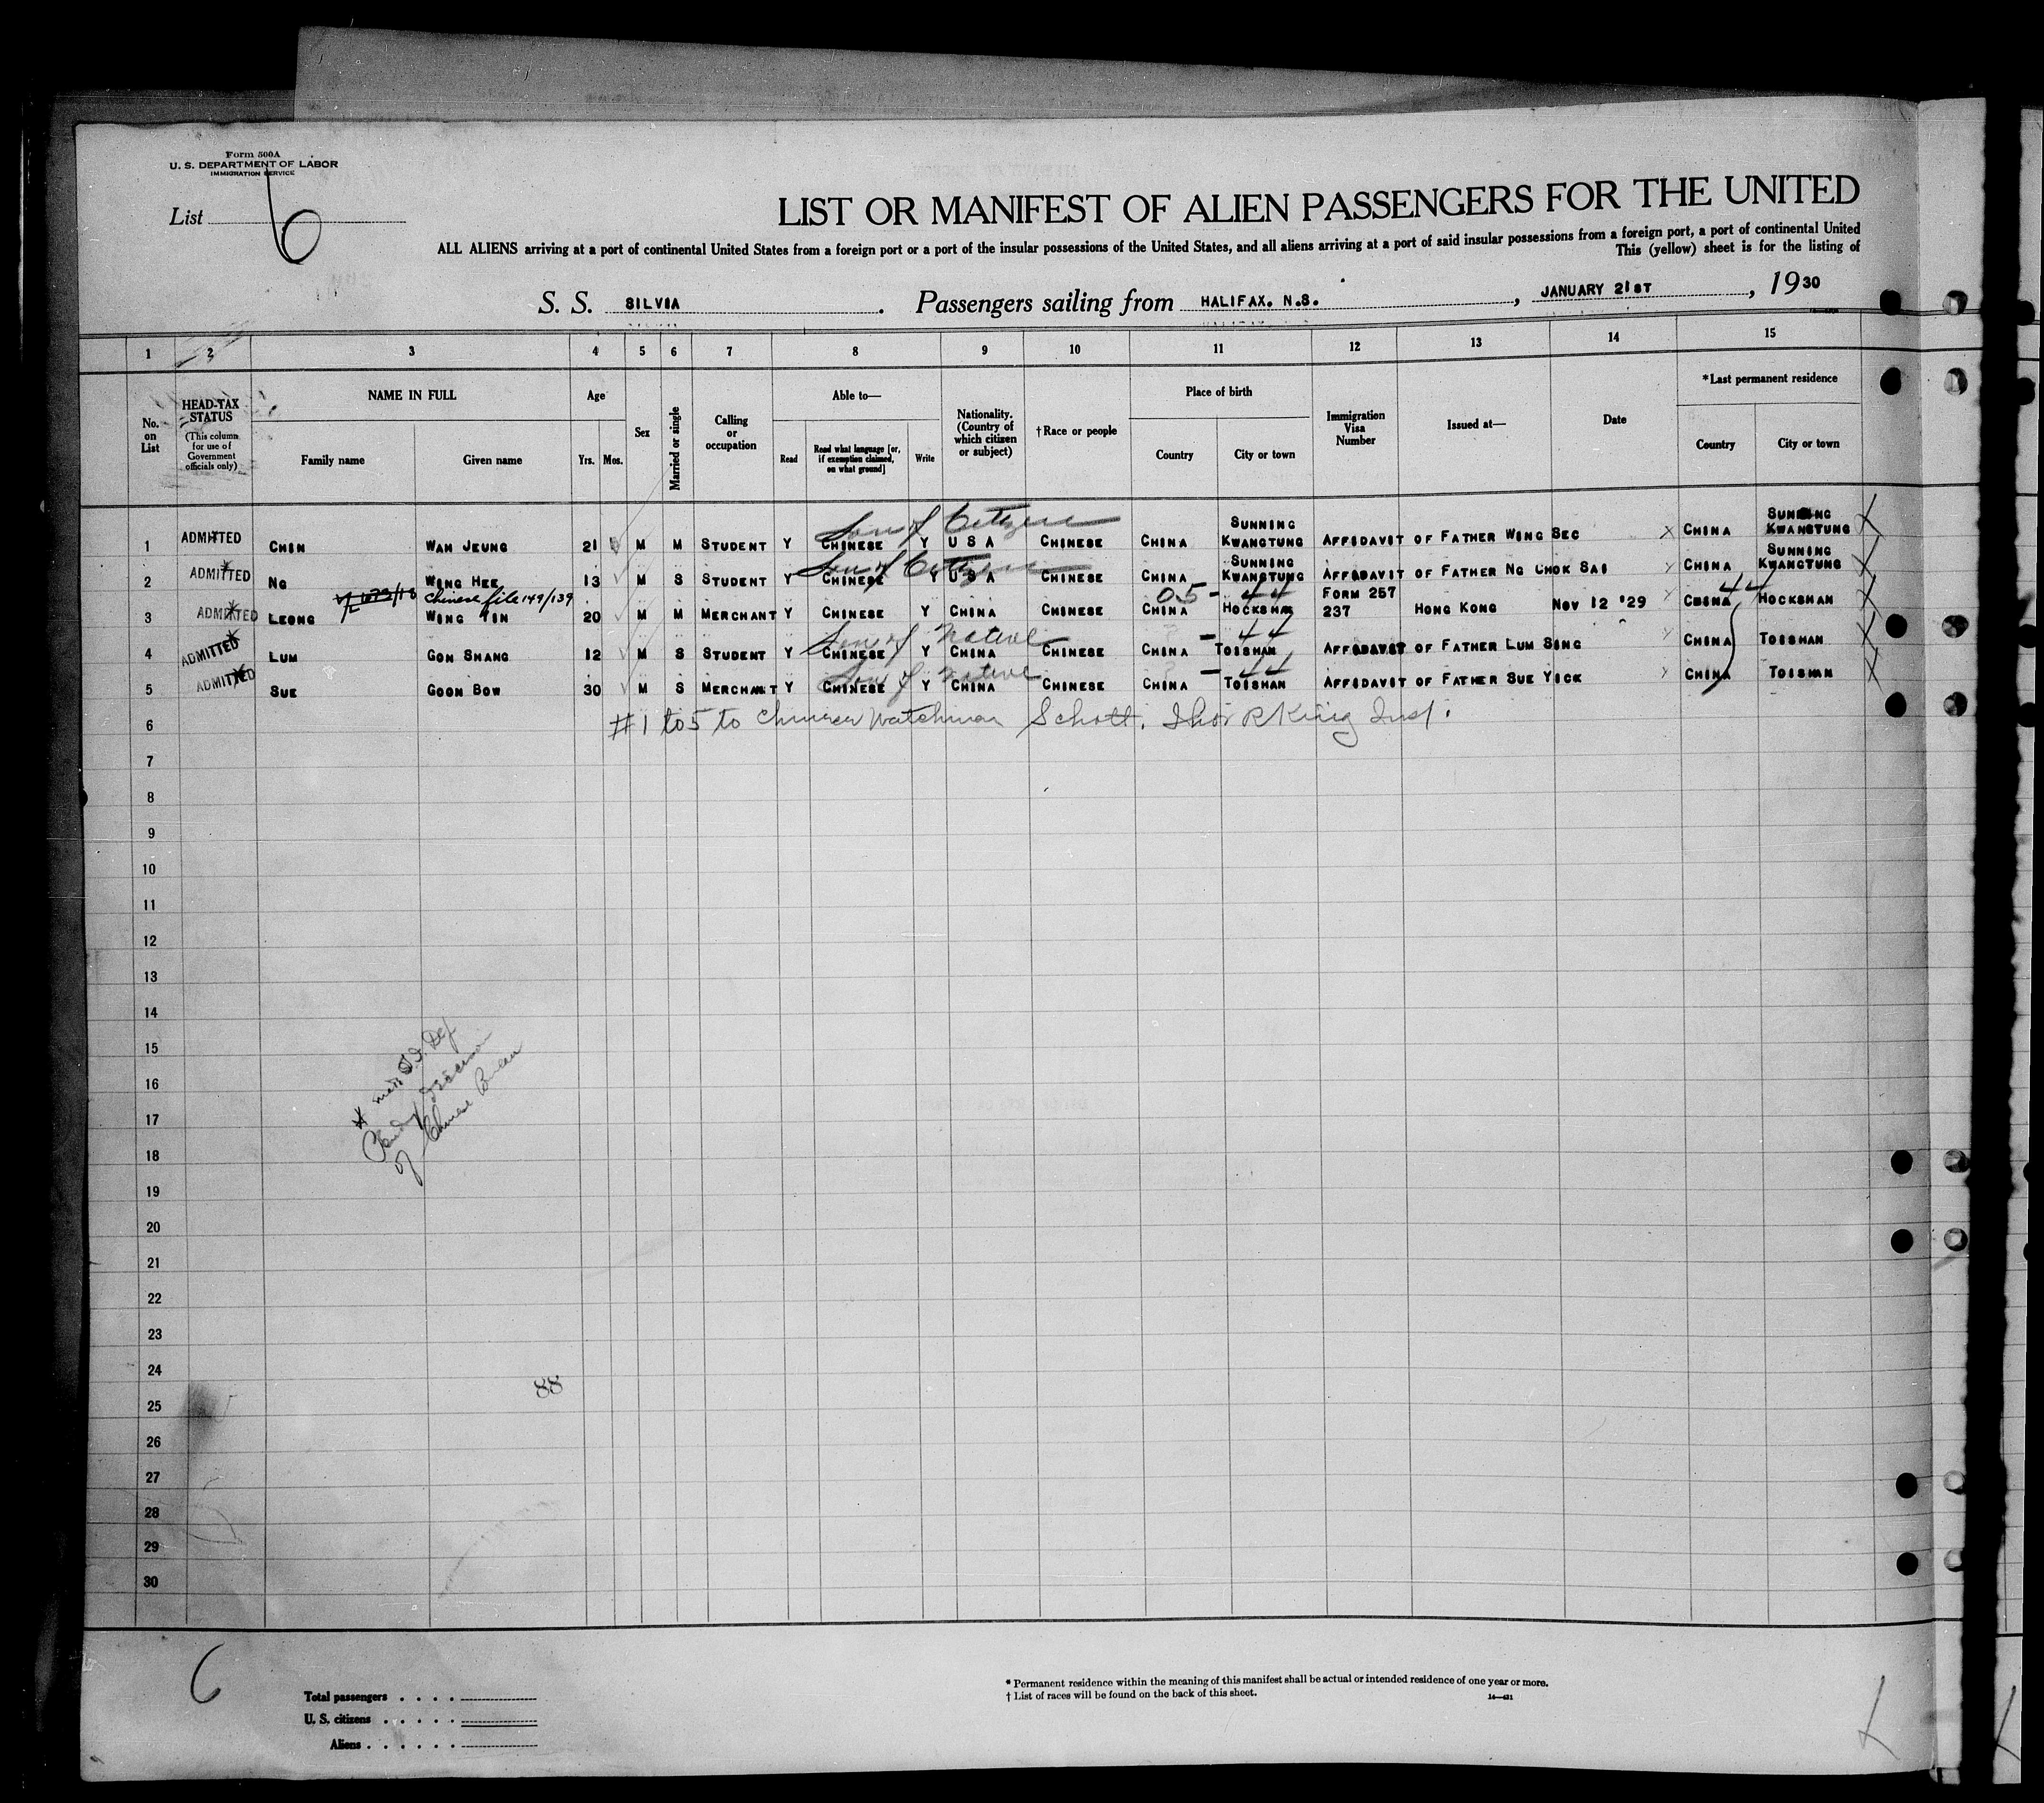 Form 500A
U. S. DEPARTMENT OF LABOR
IMMIGRATION SERVICE
List 6
LIST OR MANIFEST OF ALIEN PASSENGERS FOR THE UNITED
ALL ALIENS arriving at a port of continental United States from a foreign port or a port of the insular possessions of the United States, and all aliens arriving at a port of said insular possessions from a foreign port, a port of continental United
This (yellow) sheet is for the listing of
S. S. SILVIA. Passengers sailing from HALIFAX. N.S., JANUARY 21ST, 1930
1 2 3 4 5 6 7 8 9 10 11 12 13 14 15
No. on List
HEAD-TAX STATUS
(This column for use of Government officials only)
NAME IN FULL
Family name Given name
Age
Yrs. Mos.
Sex
Married or single
Calling or occupation
Able to—
Read Read what language [or, if exemption claimed, on what ground] Write
Nationality. (Country of which citizen or subject)
†Race or people
Place of birth
Country City or town
Immigration Visa Number
Issued at—
Date
*Last permanent residence
Country City or town
Son of Citizen
1 ADMITTED CHIN WAH JEUNG 21 M M STUDENT Y CHINESE Y U S A CHINESE CHINA SUNNING KWANGTUNG AFFIDAVIT OF FATHER WING SEC X CHINA SUNNING KWANGTUNG
Son of Citizen
2 ADMITTED NG WING HEE 13 M S STUDENT Y CHINESE Y U S A CHINESE CHINA SUNNING KWANGTUNG AFFIDAVIT OF FATHER NG CHOK SAI CHINA SUNNING KWANGTUNG
Chinese file 149/139 05- 44 44
3 ADMITTED LEONG WING YIN 20 M M MERCHANT Y CHINESE Y CHINA CHINESE CHINA HOCKSHAN FORM 257 237 HONG KONG NOV 12 '29 CHINA HOCKSHAN
Son of Native - 44
4 ADMITTED LUM GON SHANG 12 M S STUDENT Y CHINESE Y CHINA CHINESE CHINA TOISHAN AFFIDAVIT OF FATHER LUM SING CHINA TOISHAN
Son of Native - 44
5 ADMITTED SUE GOON BOW 30 M S MERCHANT Y CHINESE Y CHINA CHINESE CHINA TOISHAN AFFIDAVIT OF FATHER SUE YICK CHINA TOISHAN
6 #1 to 5 to Chinese Watchman Schott. Insp.
7
8
9
10
11
12
13
14
15
16
17
18
19
20
21
22
23
24
25
26
27
28
29
30
of Chinese Bureau
88
6
Total passengers
U. S. citizens
Aliens
* Permanent residence within the meaning of this manifest shall be actual or intended residence of one year or more.
† List of races will be found on the back of this sheet.
14—421